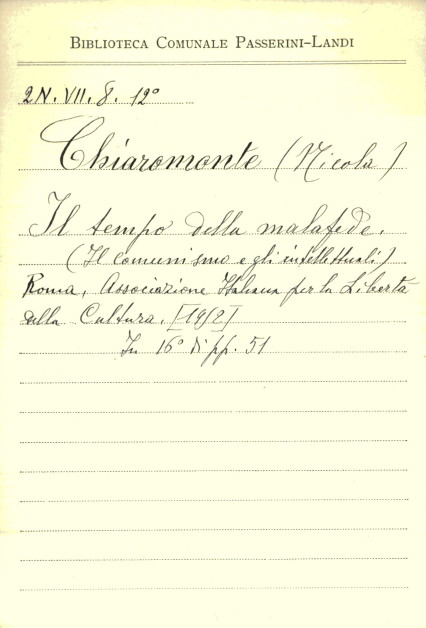 BIBLIOTECA COMUNALE PASSERINI-LANDI
2N. VII. 8. 12°
Chiaromonte (Nicola)
Il tempo della malafede.
(Il comunismo e gli intellettuali)
Roma, Associazione Italiana per la Libertà
della Cultura. [1952]
In 16° di pp. 51